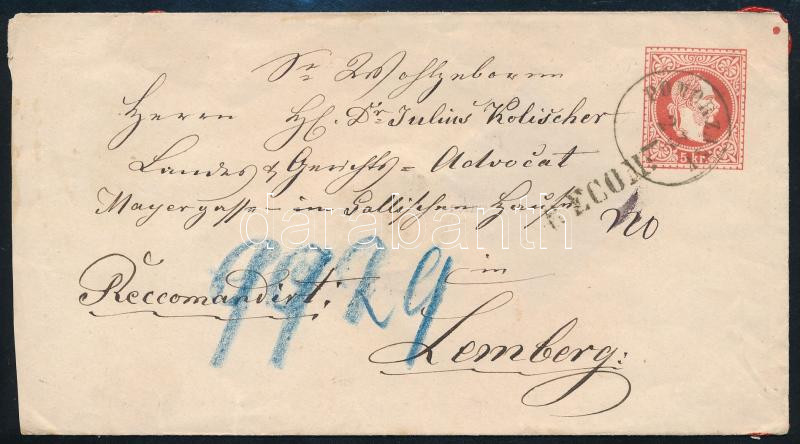 Sr Wohlgeboren
Herrn HE. Dr Julius Kolischer
Landes & Gerichts = Advocat
Mayergasse in Gallischen Hause
RECOM
No
in
Reccomandirt:
9929
Lemberg:
5 kr.
darabanth